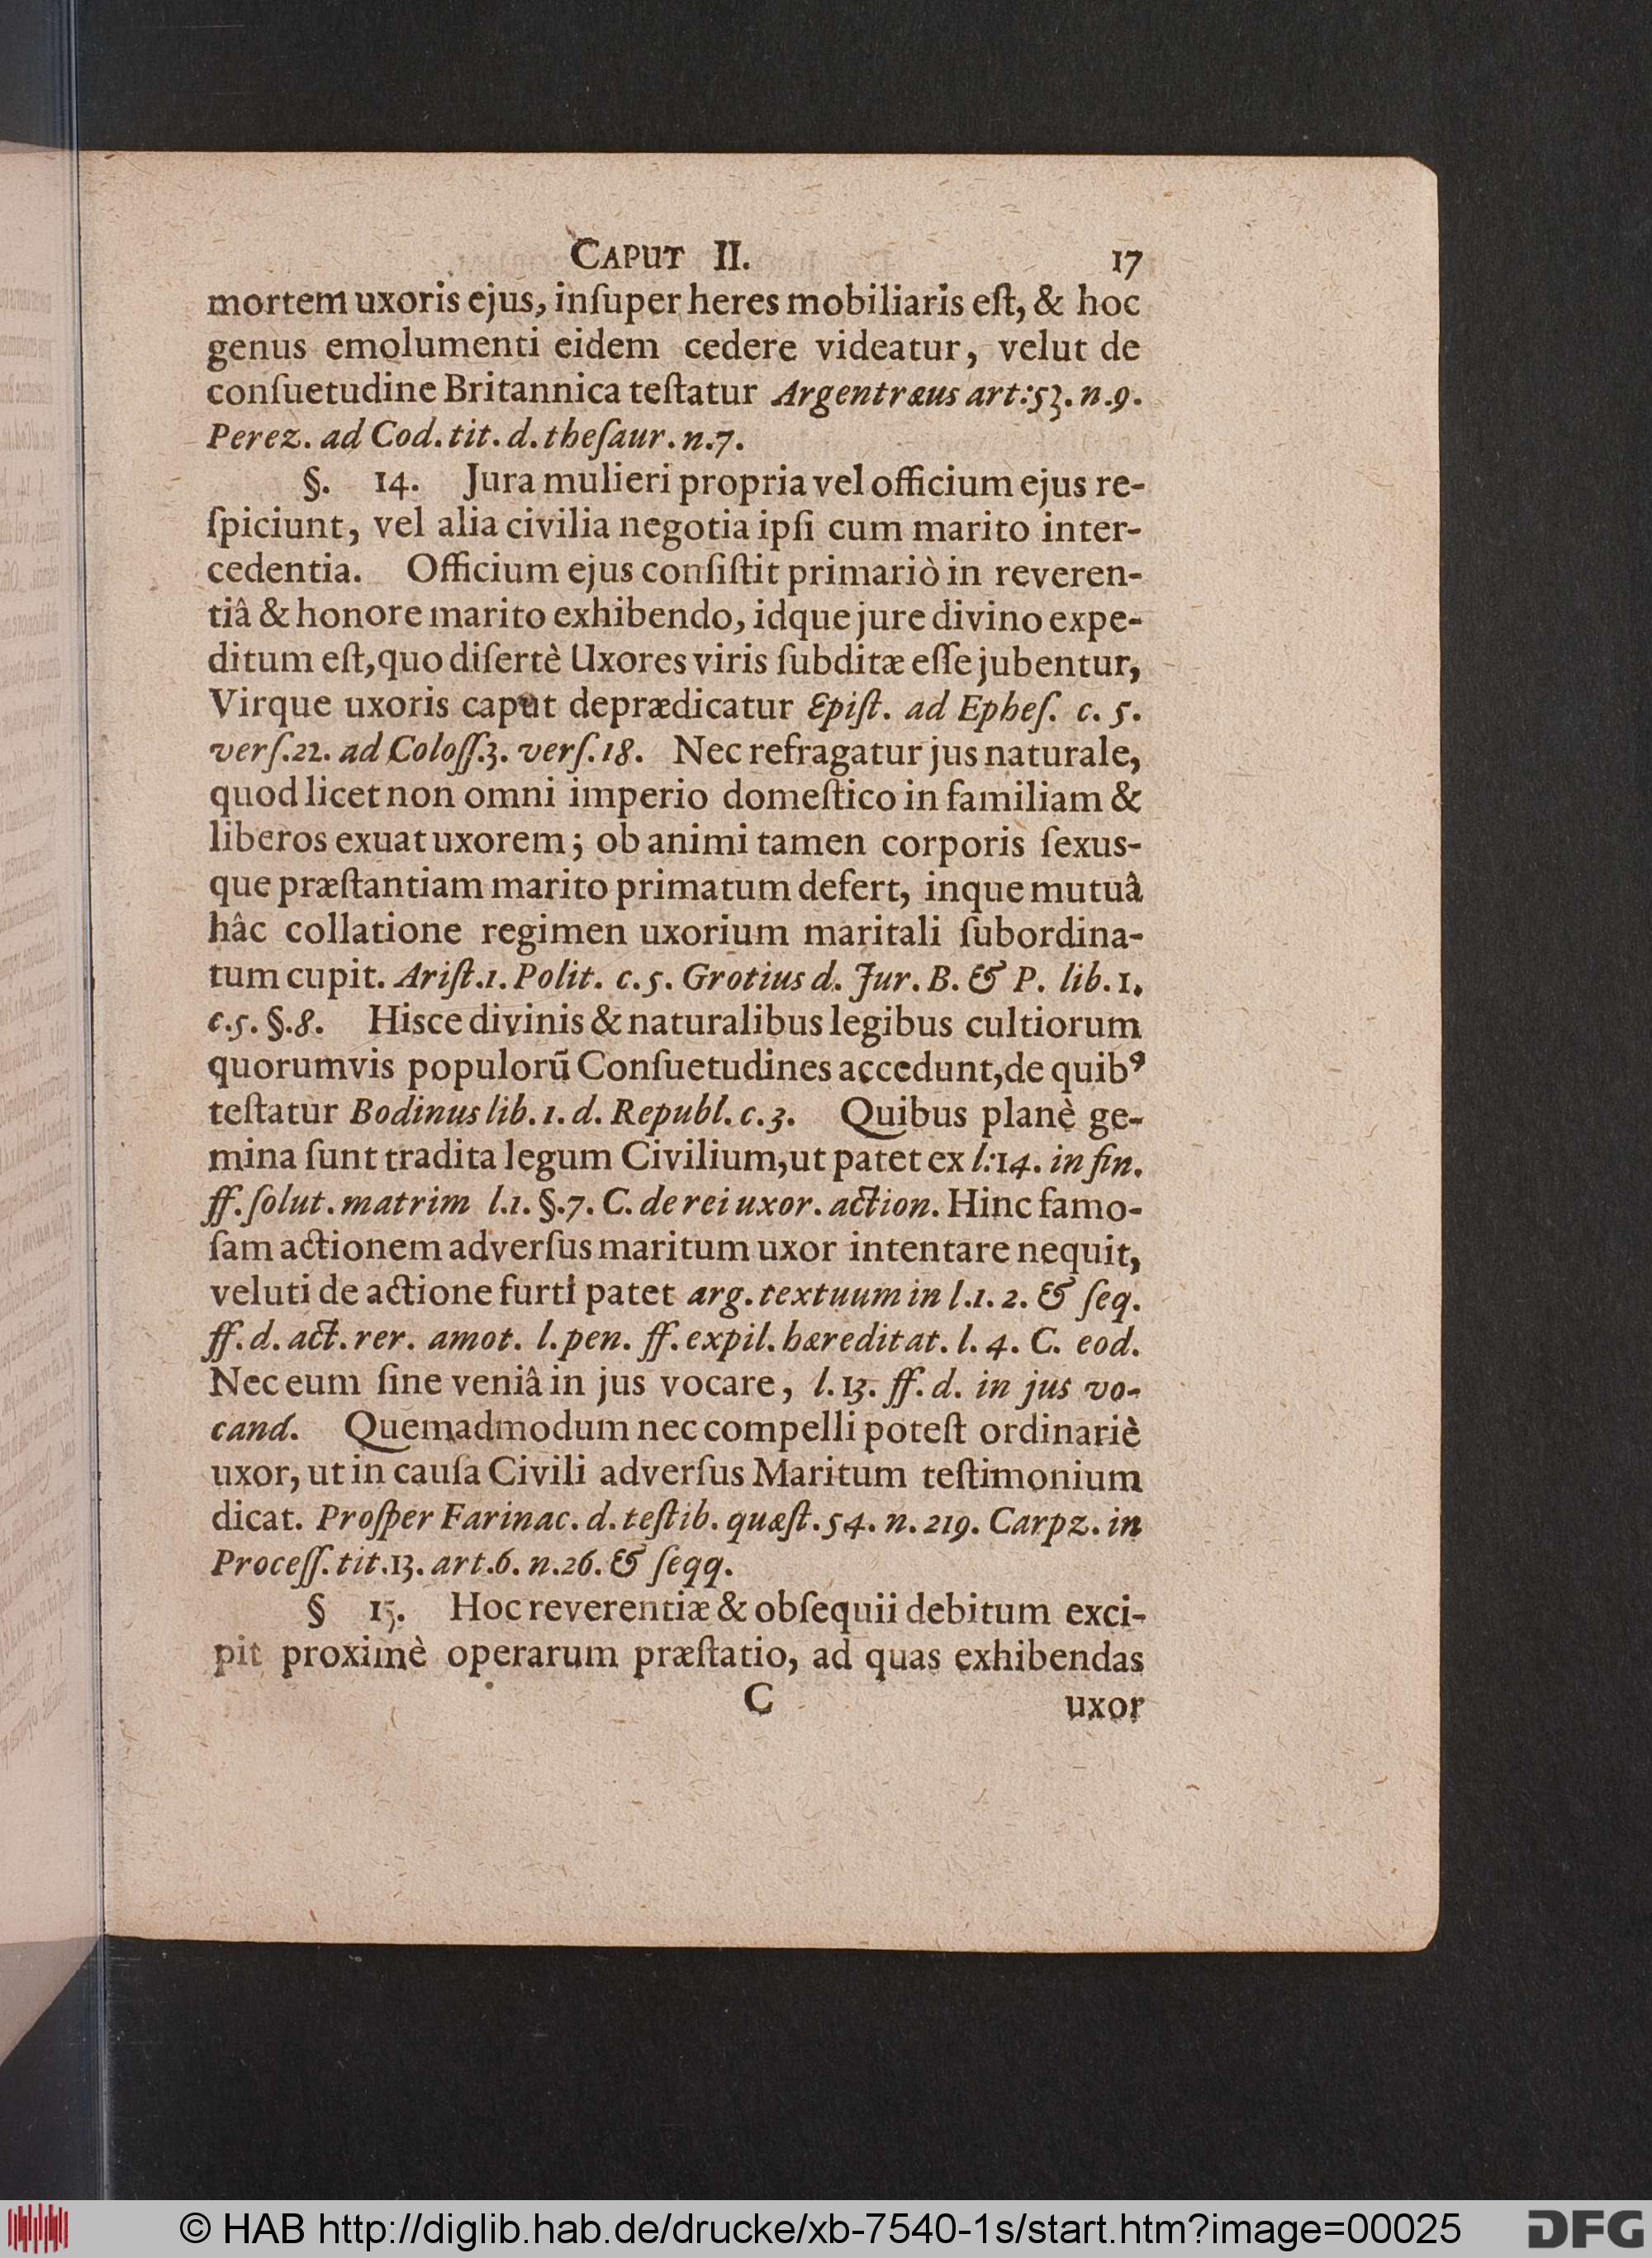 CAPUT II. 17
mortem uxoris ejus, inſuper heres mobiliaris eſt, & hoc
genus emolumenti eidem cedere videatur, velut de
conſuetudine Britannica teſtatur Argentræus art:53. n.9.
Perez. ad Cod. tit. d. theſaur. n.7.
§. 14. Jura mulieri propria vel officium ejus re-
ſpiciunt, vel alia civilia negotia ipſi cum marito inter-
cedentia. Officium ejus conſiſtit primariò in reveren-
tiâ & honore marito exhibendo, idque jure divino expe-
ditum eſt, quo diſertè Uxores viris ſubditæ eſſe jubentur,
Virque uxoris caput deprædicatur Epiſt. ad Epheſ. c. 5.
verſ.22. ad Coloſſ.3. verſ.18. Nec refragatur jus naturale,
quod licet non omni imperio domeſtico in familiam &
liberos exuat uxorem; ob animi tamen corporis ſexus-
que præſtantiam marito primatum defert, inque mutuâ
hâc collatione regimen uxorium maritali ſubordina-
tum cupit. Ariſt.1. Polit. c.5. Grotius d. Jur. B. & P. lib. 1.
c.5. §.8. Hisce divinis & naturalibus legibus cultiorum
quorumvis populorū Conſuetudines accedunt, de quibꝰ
teſtatur Bodinus lib. 1. d. Republ. c.3. Quibus planè ge-
mina ſunt tradita legum Civilium, ut patet ex l:14. in fin.
ff. ſolut. matrim l.1. §.7. C. de rei uxor. action. Hinc famo-
ſam actionem adverſus maritum uxor intentare nequit,
veluti de actione furti patet arg. textuum in l.1. 2. & ſeq.
ff. d. act. rer. amot. l. pen. ff. expil. hæreditat. l. 4. C. eod.
Nec eum ſine veniâ in jus vocare, l. 13. ff. d. in jus vo-
cand. Quemadmodum nec compelli poteſt ordinariè
uxor, ut in cauſa Civili adverſus Maritum teſtimonium
dicat. Proſper Farinac. d. teſtib. quæſt. 54. n. 219. Carpz. in
Proceſſ. tit.13. art.6. n.26. & ſeqq.
§ 15. Hoc reverentiæ & obſequii debitum exci-
pit proximè operarum præſtatio, ad quas exhibendas
C uxor
© HAB http://diglib.hab.de/drucke/xb-7540-1s/start.htm?image=00025 DFG